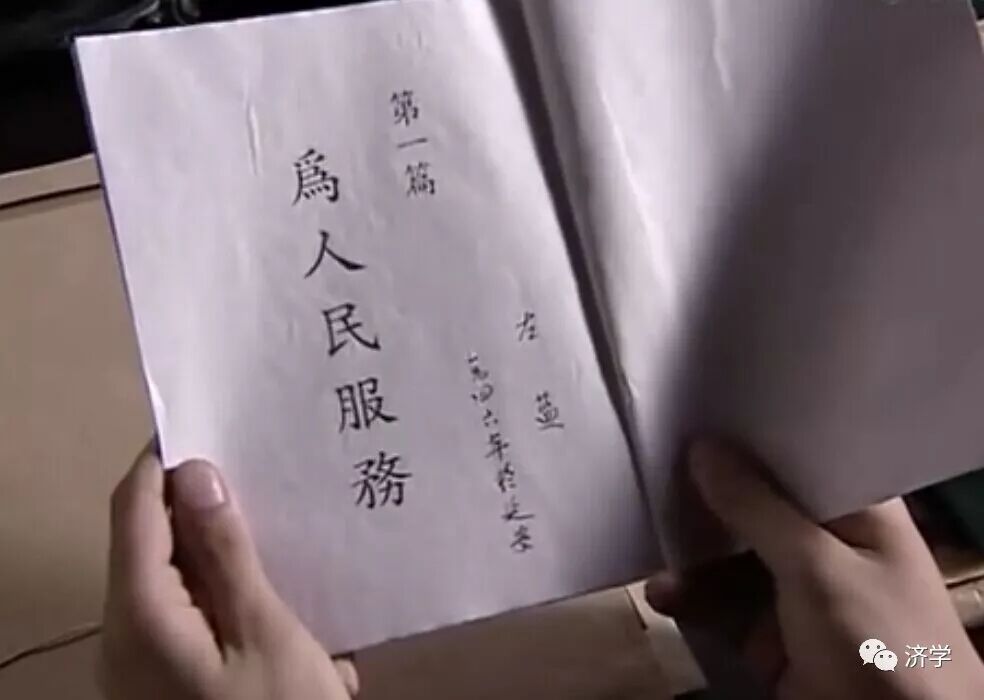 第一篇
爲人民服務
左藍
一九四六年於延安
济学